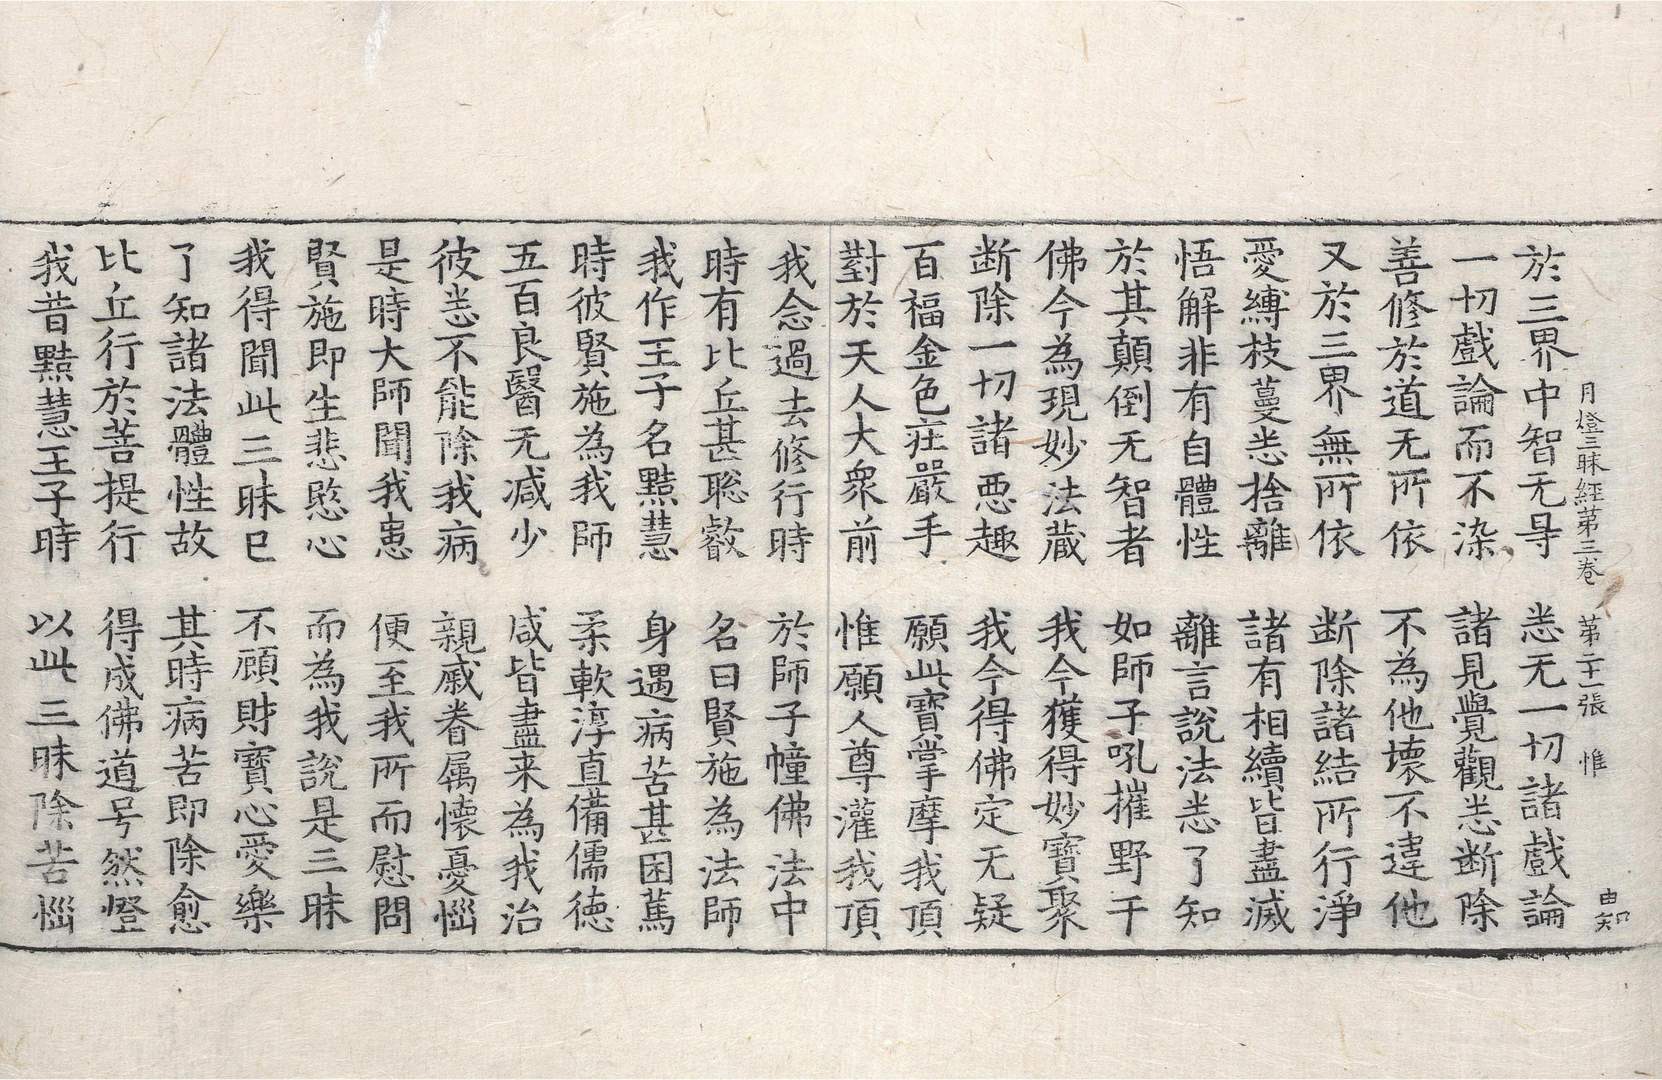 月燈三昧經第三卷　第二十一張　惟
由知
於三界中智无导　悉无一切諸戲論
一切戲論而不染　諸見覺觀悉断除
善修於道无所依　不為他壞不違他
又於三界無所依　断除諸結所行淨
愛縛枝蔓悉捨離　諸有相續皆盡滅
悟解非有自體性　離言說法悉了知
於其顛倒无智者　如師子吼摧野干
佛今為現妙法藏　我今獲得妙寶聚
断除一切諸惡趣　我今得佛定无疑
百福金色莊嚴手　願此寶掌摩我頂
對於天人大衆前　惟願人尊灌我頂
我念過去修行時　於師子幢佛法中
時有比丘甚聡叡　名曰賢施為法師
我作王子名黠慧　身遇病苦甚困篤
時彼賢施為我師　柔軟淳直備儒德
五百良醫无减少　咸皆盡来為我治
彼悉不能除我病　親戚眷属懷憂惱
是時大師聞我患　便至我所而慰問
賢施即生悲愍心　而為我說是三昧
我得聞此三昧已　不顧財寶心愛樂
了知諸法體性故　其時病苦即除愈
比丘行於菩提行　得成佛道号然燈
我昔黠慧王子時　以此三昧除苦惱